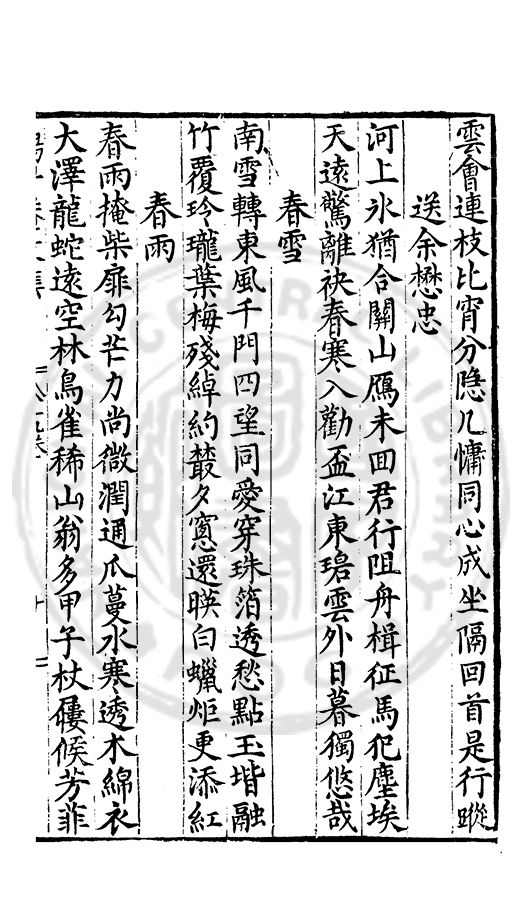 雲會連枝比宵分隐几慵同心成坐隔回首是行蹤
送余懋忠
河上氷猶合關山鴈未回君行阻舟楫征馬犯塵埃
天遠驚離袂春寒入勸盃江東碧雲外日暮獨悠哉
春雪
南雪轉東風千門四望同愛穿珠箔透愁點玉堦融
竹覆玲瓏葉梅殘綽約叢夕窻還暎白蠟炬更添紅
春雨
春雨掩柴扉勾芒力尚微潤通瓜蔓水寒透木綿衣
大澤龍蛇遠空林鳥雀稀山翁多甲子杖屨候芳菲